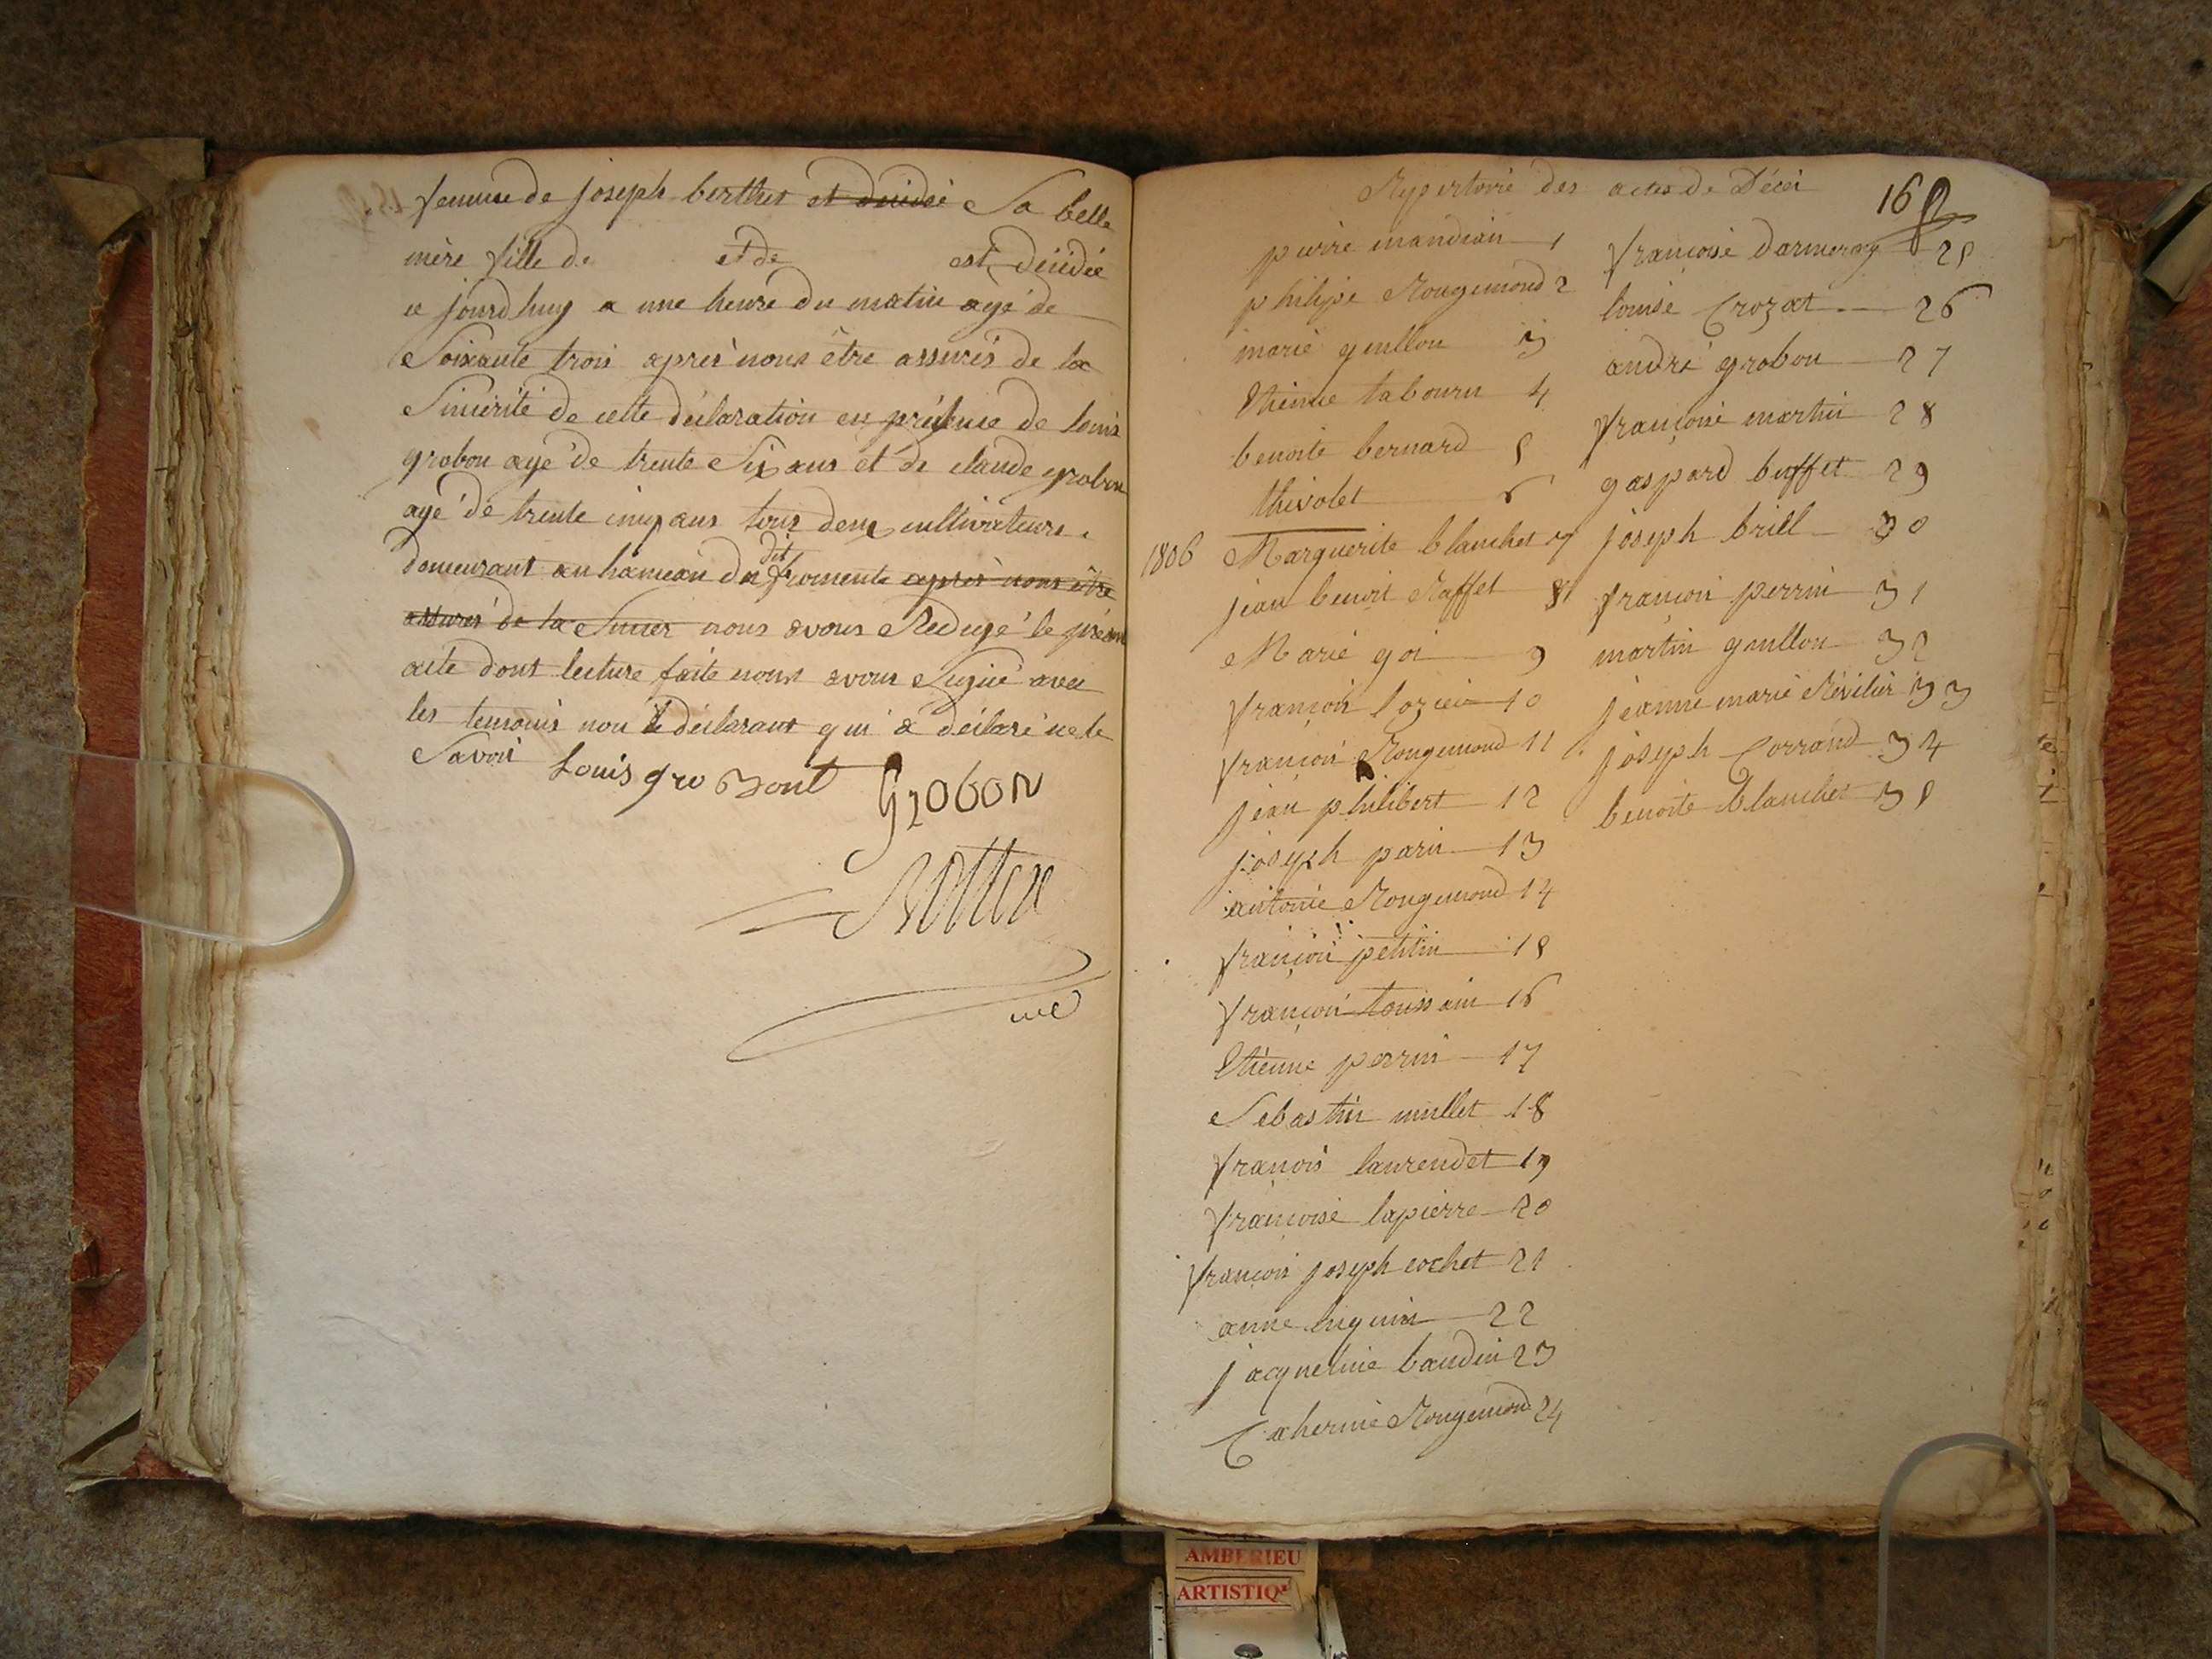 femme de joseph berthet et décidée Sa belle
mère fille de et de est décidée
ce jourdhuy a une heure du matin agé de
Soixante trois après nous être assurés de la
Sincérité de cette déclaration en présence de louis
grobon agé de trente Six ans et de claude grobon
agé de trente cinq ans tous deux cultivateurs
demeurant au hameau du dit fromente après nous être
assurés de la Sincer nous avons Rédigé le présent
acte dont lecture faite nous avons Signé avec
les temoins non le déclarant qui a déclaré ne le
Savoir
Louis gro bont Grobon
Repertoire des actes de Décei
16
pierre mandian 1
philipe Rougemond 2
marie guillon 3
Etienne tabouru 4
benoite bernard 5
thivolet 6
1806 Marguerite blanchet 7
jean benoit Raffet 8
Marie goi 9
françois lozier 10
françois Rougemond 11
jean philibert 12
joseph parin 13
antoine Rougemond 14
françois petitin 15
françois toussain 16
Etienne perrin 17
Sebastien millet 18
franois laurendet 19
françoise lapierre 20
françois joseph cochet 21
anne luguin 22
jacqueline baudin 23
Catherine Rougemond 24
françoise darmeray 25
louise Crozat 26
andré grobon 27
françoise martin 28
gaspard buffet 29
joseph brill 30
françois perrin 31
martin guillon 32
jeanne marie Révilier 33
joseph Corrand 34
benoite blanchet 35
AMBERIEU
ARTISTIQ